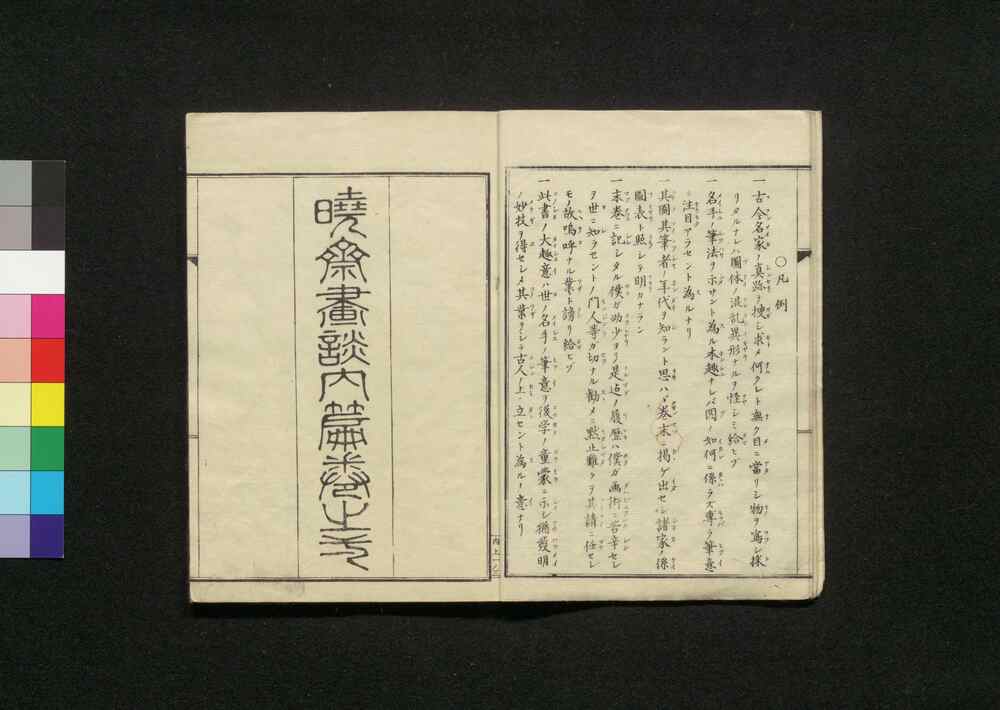 〇凡例
一古今名家ノ真跡ヲ捜シ求メ何クレト無ク目ニ當リシ物ヲ寫シ採
リタルナレハ圖体ノ混乱異形ナルヲ怪シミ給ヒゾ
一名手ノ筆法ヲ示サント為ル本趣ナレバ図ノ如何ニ係ラズ專ラ筆意
ニ注目アラセント為ルナリ
一其圖其筆者ノ年代ヲ知ラント思ハヾ巻末ニ掲ゲ出セシ諸家ノ系
圖表ト照シテ明カナラン
一末巻ニ記シタル僕ガ幼少ヨリ是迠ノ履歴ハ僕ガ画術ニ苦辛セシ
ヲ世ニ知ラセントノ門人等ガ切ナル勧メニ黙止難クテ其請ニ任セシ
モノ故嗚呼ナル業ト謗リ給ヒゾ
一此書ノ大趣意ハ世ノ名手ノ筆意ヲ後学ノ童蒙ニ示シ猶發明
ノ妙技ヲ得セシメ其業ヲシテ古人ノ上ニ立セント為ルノ意ナリ
内上ノ二
曉齋畫談内篇巻之上